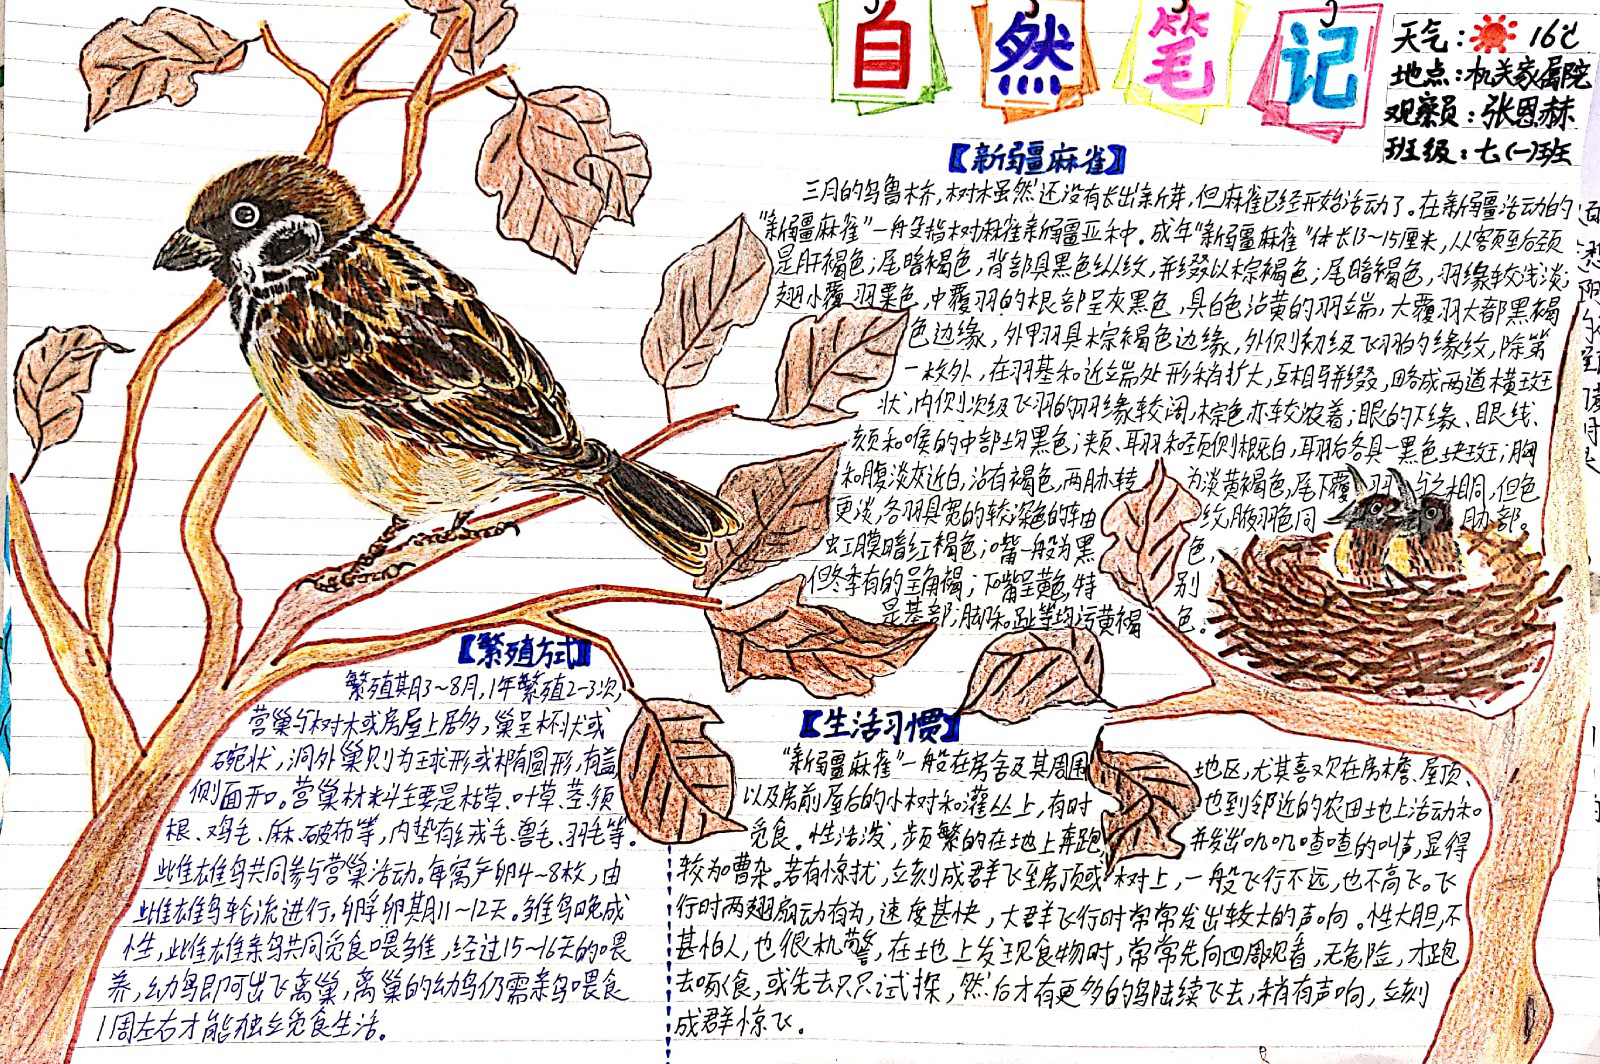 自然笔记
天气：☀ 16℃
地点：机关家属院
观察员：张恩赫
班级：七（一）班
【新疆麻雀】
三月的乌鲁木齐，树木虽然还没有长出新芽，但麻雀已经开始活动了。在新疆活动的
“新疆麻雀”一般是指树麻雀新疆亚种。成年“新疆麻雀”体长13~15厘米，从额至后颈
是肝褐色；尾暗褐色，背部具黑色纵纹，并缀以棕褐色；尾暗褐色，羽缘较浅淡；
翅小覆羽栗色，中覆羽的根部呈灰黑色，具白色沾黄的羽端，大覆羽大部黑褐
色边缘，外甲羽具棕褐色边缘，外侧初级飞羽的缘纹，除第
一枚外，在羽基和近端处形稍扩大，互相骈缀，略成两道横斑
状，内侧次级飞羽的羽缘较阔，棕色亦较浓着；眼的下缘、眼线、
颏和喉的中部均黑色；颊、耳羽和颈侧概白，耳羽后各具一黑色块斑；胸
和腹淡灰近白，沾有褐色，两肋转为淡黄褐色，尾下覆羽与之相同，但色
更淡，各羽具宽的较深色的轴纹，腋羽色同肋部。
虹膜暗红褐色；嘴一般为黑色，
但冬季有的呈角褐；下嘴呈黄色，特别
是基部；脚和趾等均污黄褐色。
【繁殖方式】
繁殖期3~8月，1年繁殖2-3次，
营巢与树木或房屋上居多，巢呈杯状或
碗状，洞外巢则为球形或椭圆形，有盖，
侧面开口。营巢材料主要是枯草、叶草、茎、须
根、鸡毛、麻、破布等，内垫有绒毛、兽毛、羽毛等。
此雌雄鸟共同参与营巢活动。每窝产卵4~8枚，由
此雌雄鸟轮流进行，孵卵期11~12天。雏鸟晚成
性，此雌雄亲鸟共同觅食喂雏，经过15~16天的喂
养，幼鸟即可出飞离巢，离巢的幼鸟仍需亲鸟喂食
1周左右才能独立觅食生活。
【生活习惯】
“新疆麻雀”一般在房舍及其周围地区，尤其喜欢在房檐、屋顶、
以及房前屋后的小树和灌丛上，有时也到邻近的农田地上活动和
觅食。性活泼，频繁的在地上奔跑，并发出叽叽喳喳的叫声，显得
较为嘈杂。若有惊扰，立刻成群飞至房顶或树上，一般飞行不远，也不高飞。飞
行时两翅扇动有力，速度甚快，大群飞行时常常发出较大的声响。性大胆，不
甚怕人，也很机警，在地上发现食物时，常常先向四周观看，无危险，才跑
去啄食，或先去只只试探，然后才有更多的鸟陆续飞去，稍有声响，立刻
成群惊飞。